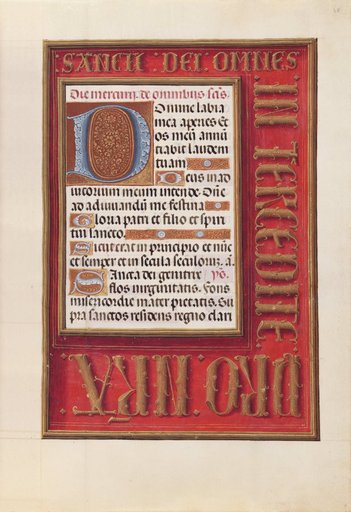 SANCTI DEI OMNES
IN TERCEDITE
PRO NRA
Die mercurij de omnibus scis.
Domine labia
mea aperies Et
os meū annū
tiabit laudem
tuam
Deus in ad
iutorium meum intende. Dn̄e
ad adiuuandū me festina
Gloria patri et filio et spiri
tui sancto.
Sicut erat in principio et nūc
et semper et in secula seculorū. a.
Sancta dei genitrix
flos virginitatis. Fons
misericordie mater pietatis. Su
pra sanctos residens regno clari